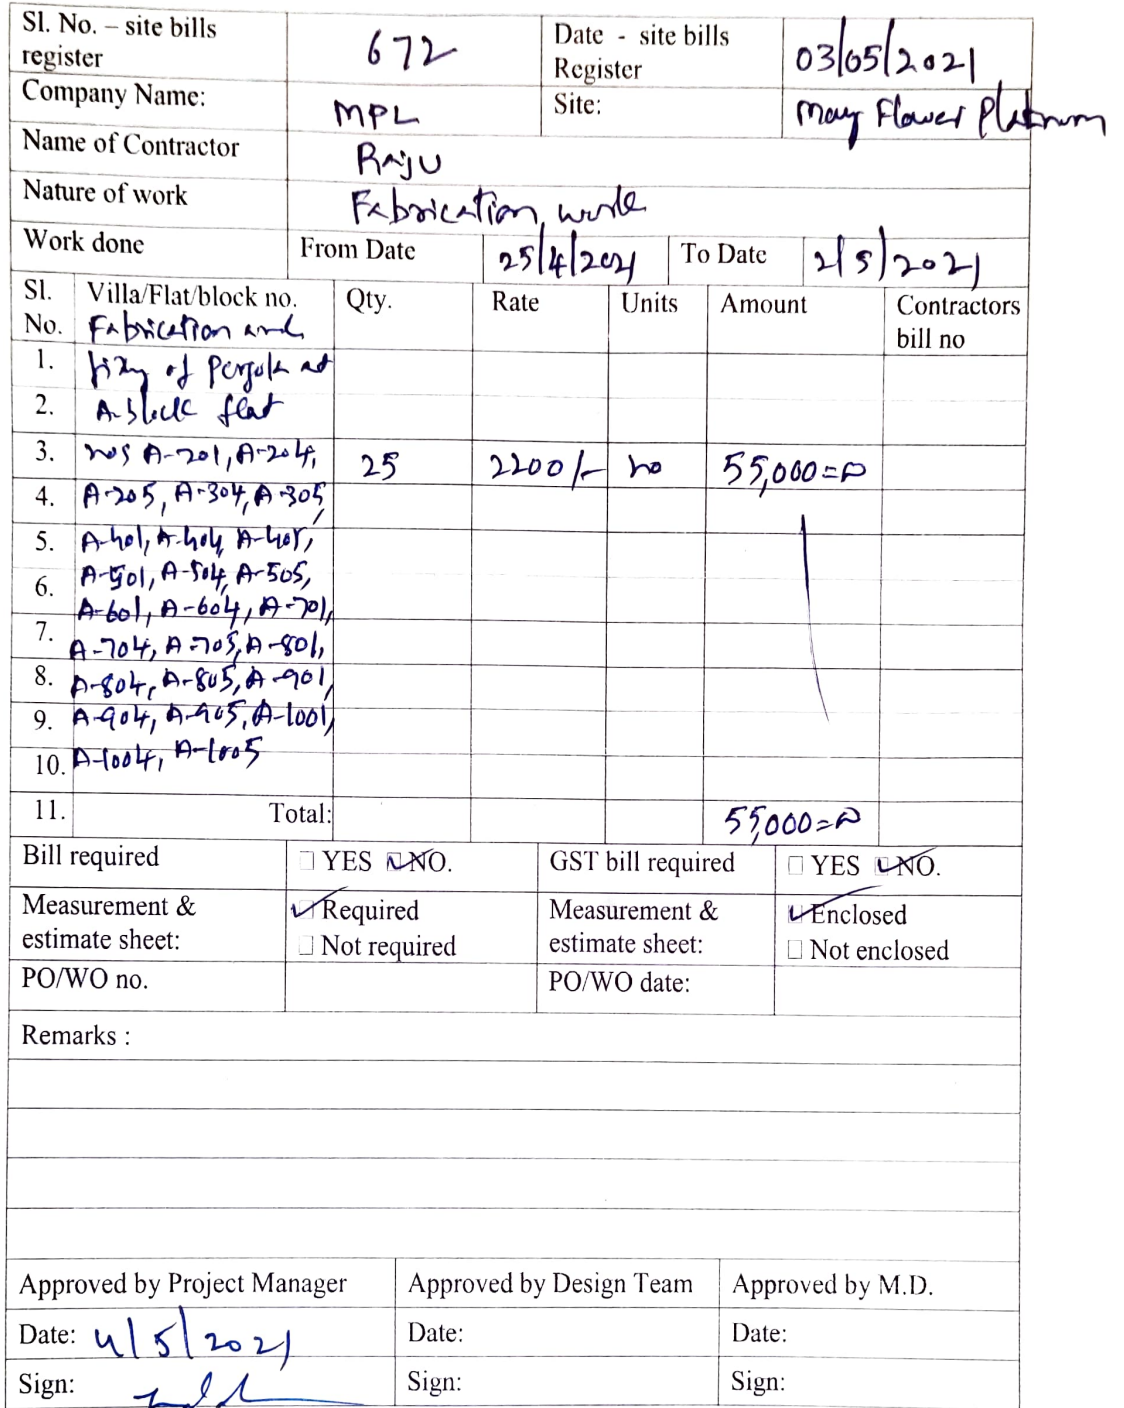 Sl. No. – site bills register 672 Date - site bills Register 03/05/2021
Company Name: MPL Site: May Flower Platinum
Name of Contractor Raju
Nature of work Fabrication work
Work done From Date 25/4/2021 To Date 2/5/2021
Sl. No. Villa/Flat/block no. Qty. Rate Units Amount Contractors bill no
Fabrication and
1. fixing of Pergola at
2. A-block flat
3. nos A-201, A-204, 25 2200/- no 55,000=00
4. A-205, A-304, A-305,
5. A-401, A-404, A-405,
6. A-501, A-504, A-505,
A-601, A-604, A-701,
7. A-704, A-705, A-801,
8. A-804, A-805, A-901,
9. A-904, A-905, A-1001,
10. A-1004, A-1005
11. Total: 55,000=00
Bill required YES NO. GST bill required YES NO.
Measurement & estimate sheet: Required Measurement & estimate sheet: Enclosed
Not required Not enclosed
PO/WO no. PO/WO date:
Remarks :
Approved by Project Manager Approved by Design Team Approved by M.D.
Date: 4/5/2021 Date: Date:
Sign: Sign: Sign: